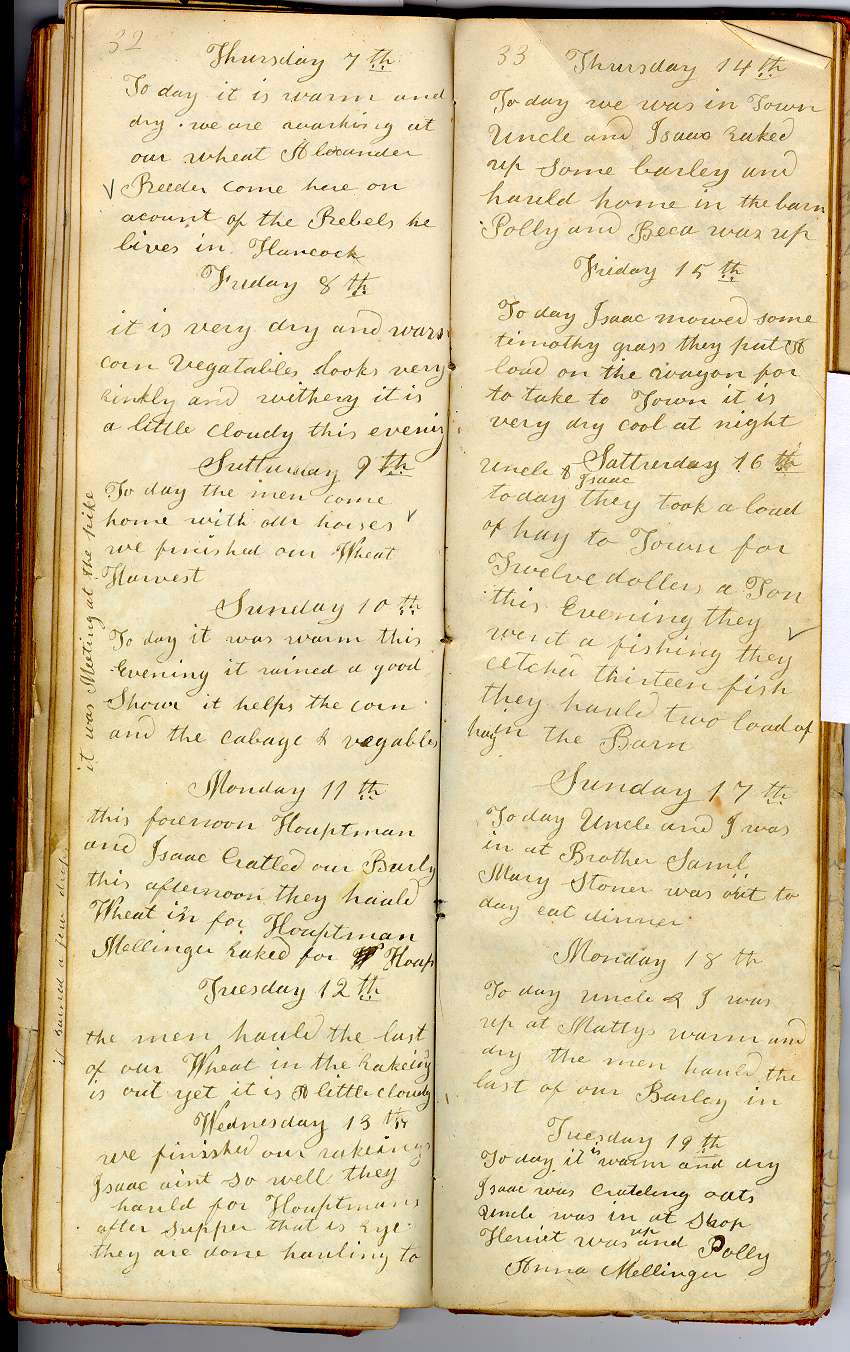 32
Thursday 7th
To day it is warm and
dry. we are working at
our wheat Alexander
√ Reeder come here on
acount of the Rebels he
lives in Hancock
Friday 8th
it is very dry and warm
corn vegatables looks very
rinkly and withery it is
a little cloudy this evening
Satturday 9th
To day the men come
home with our horses √
we finished our Wheat
Harvest
Sunday 10th
To day it was warm this
Evening it rained a good
Showr it helps the corn
and the cabage & vegables
it was Meeting at the pike
Monday 11th
this forenoon Houptman
and Isaac Cratled our Barly
this afternoon they hauld
Wheat in for Houptman
Mellinger raked for Houp
it rained a few drops
Tuesday 12th
the men hauld the last
of our Wheat in the rakeing
is out yet it is A little cloudy
Wednesday 13th
we finished our rakeings
Isaac aint so well they
hauld for Houptmans
after supper that is rye
they are done hauling to
33
Thursday 14th
To day we was in Town
Uncle and Isaac raked
up some barley and
hauld home in the barn
Polly and Beca was up
Friday 15th
To day Isaac mowed some
timothy grass they put A
load on the wagon for
to take to Town it is
very dry cool at night
Satturday 16th
Uncle & Isaac
today they took a load
of hay to Town for
Twelve dollers a Ton
this Evening they √
went a fishing they
cetched thirteen fish
they hauld two load of
hay in the Barn
Sunday 17th
To day Uncle and I was
in at Brother Saml
Mary Stoner was out to
day eat dinner
Monday 18th
To day uncle & I was
up at Mattys warm and
dry the men hauld the
last of our Barley in
Tuesday 19th
To day it is warm and dry
Isaac was Cratdling oats
Uncle was in at Shop
Heriet was up and Polly
Anna Mellinger